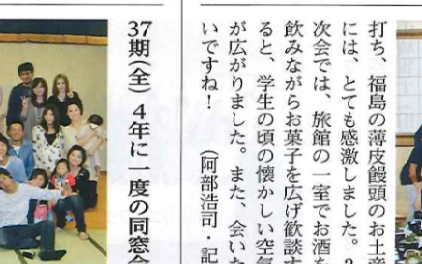 打ち、福島の薄皮饅頭のお土産
には、とても感激しました。2
次会では、旅館の一室でお酒を
飲みながらお菓子を広げ歓談す
ると、学生の頃の懐かしい空気
が広がりました。また、会いた
いですね! (阿部浩司・記
37期(全) 4年に一度の同窓会